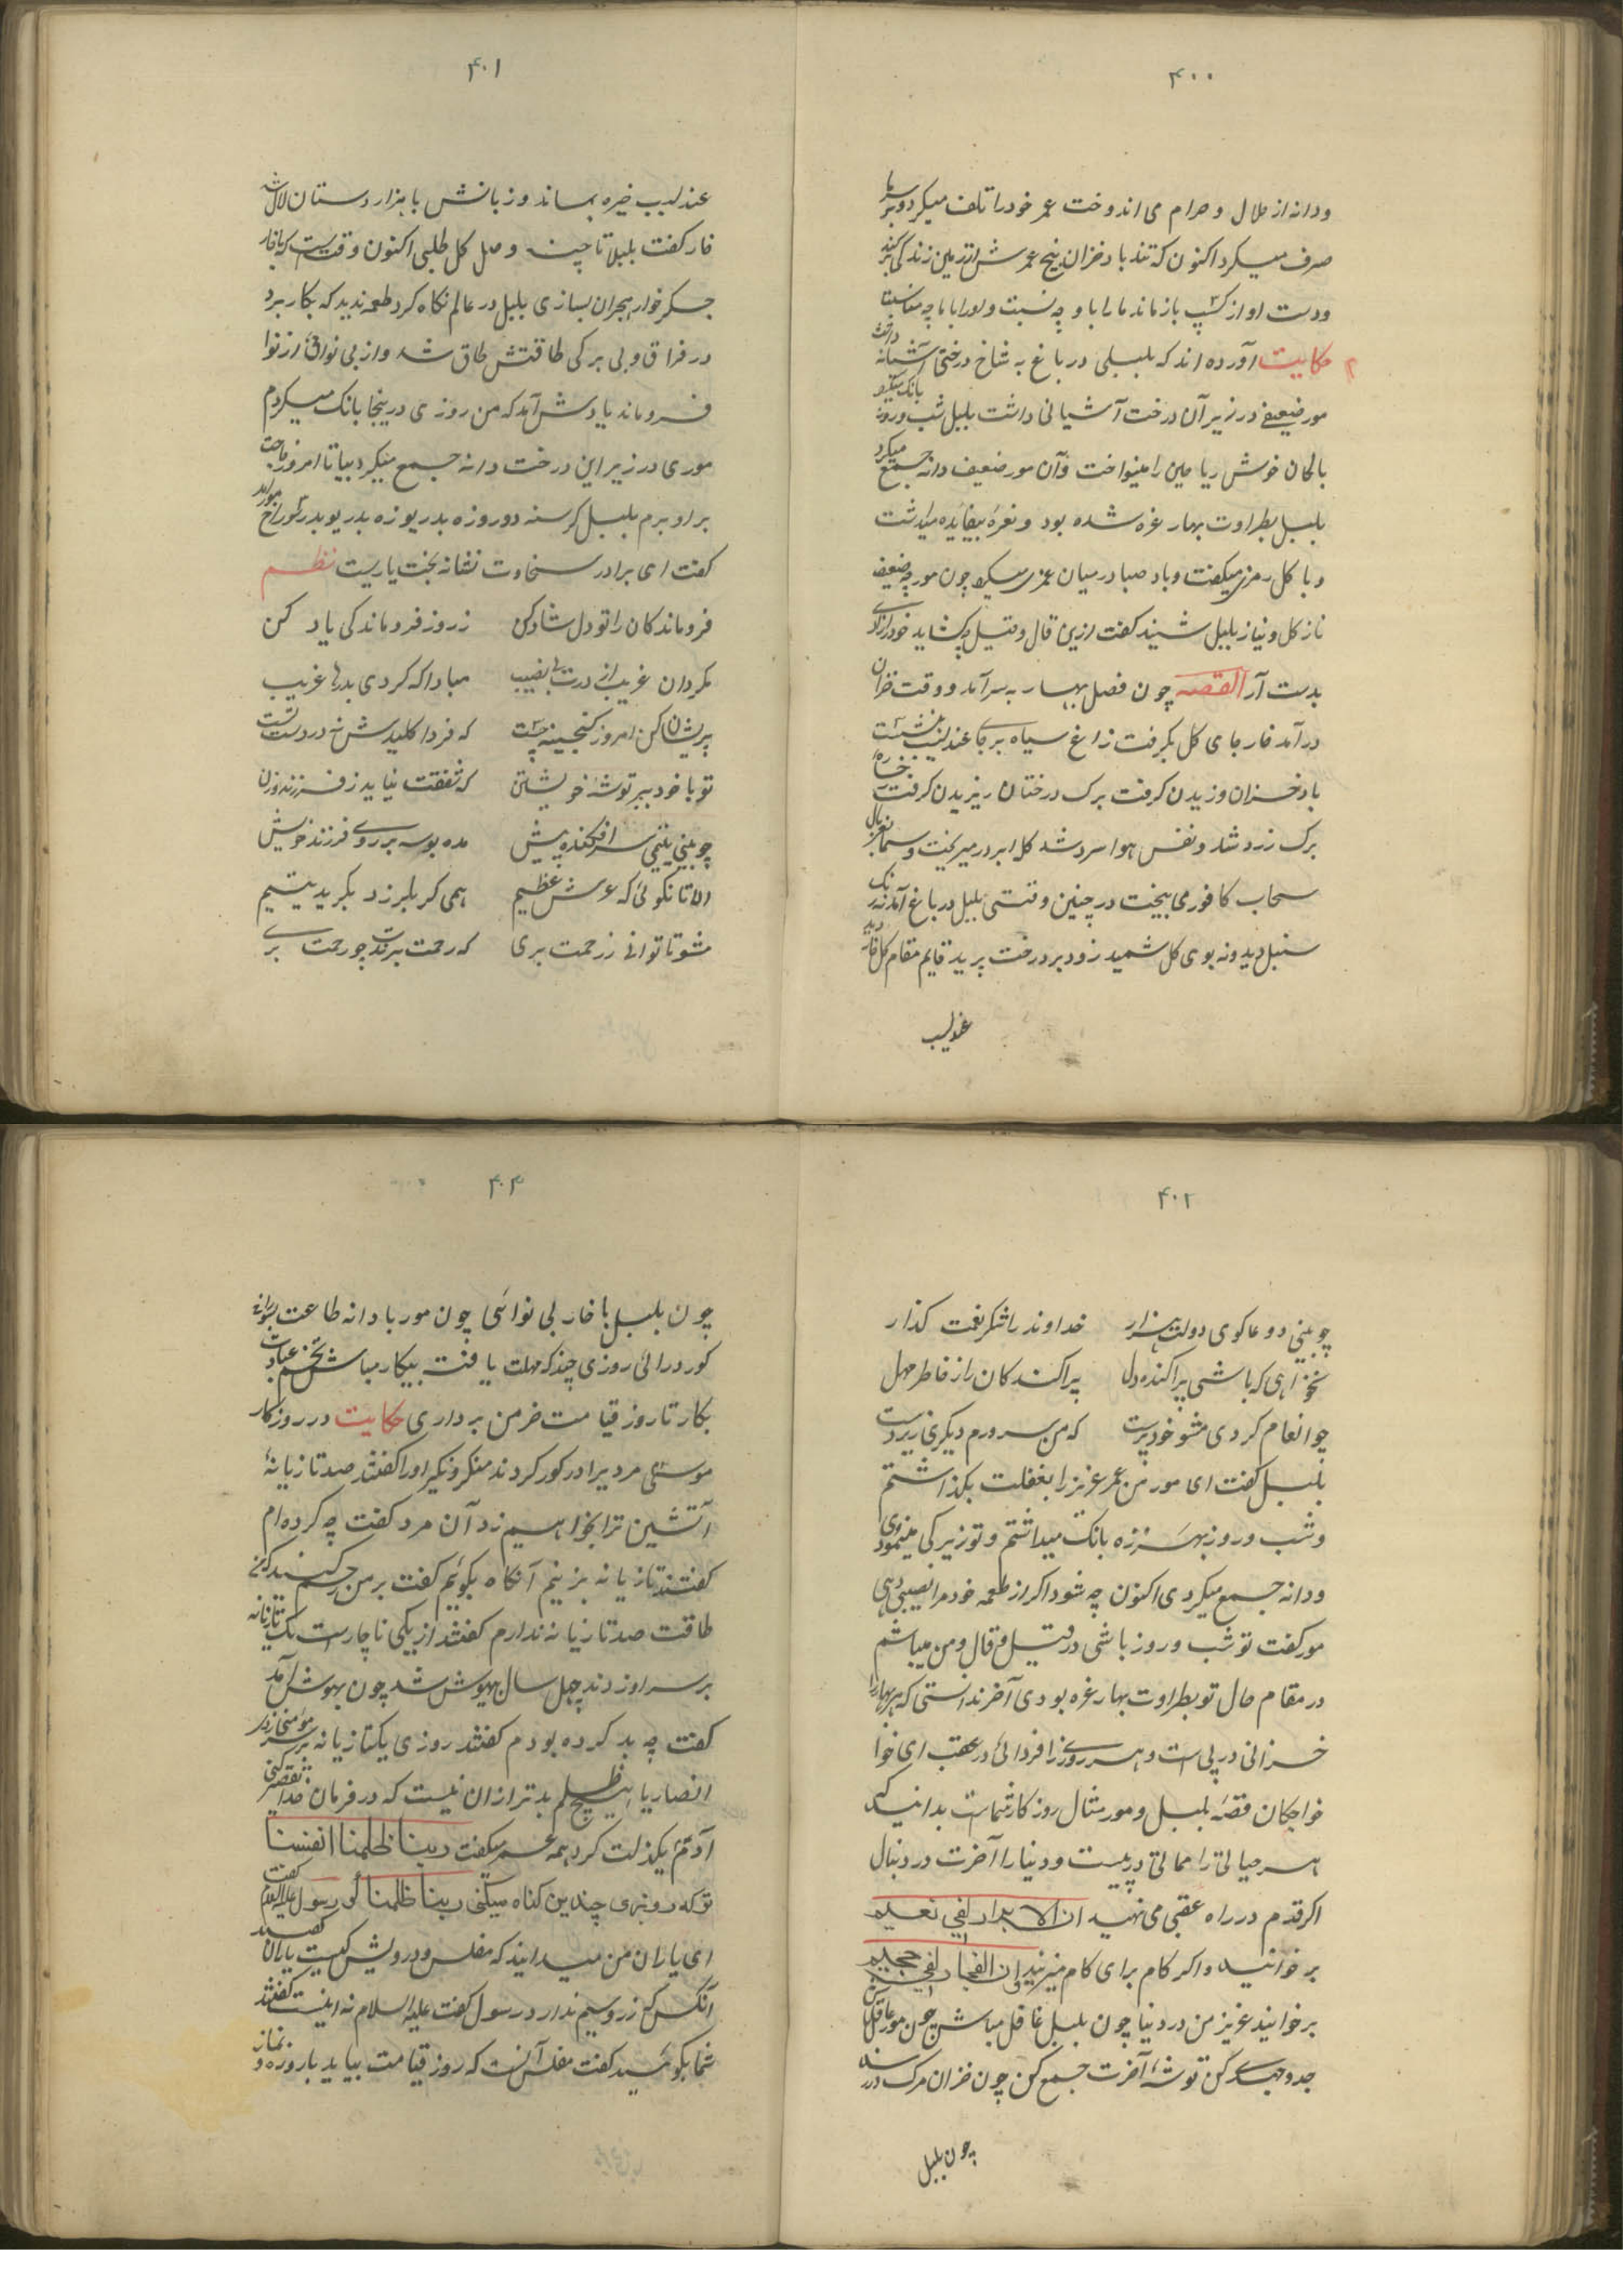 ۴۰۰
ودانه از حلال و حرام می اندوخت عمر خود را تلف میکرد وبر پا
صرف میکرد اکنون که تندباد خزان بیخ عمرش از زمین زندگی برکند
ودست او از کسب بازماند ما را با او چه نسبت و اورا با ما چه مناسبت
حکایت آورده اند که بلبلی در باغ به شاخ درختی آشیانه داشت
مور ضعیفی در زیر آن درخت آشیانی داشت بلبل شب وروز بانک میکرد
بالحان خوش ریاحین را مینواخت وآن مور ضعیف دانه جمع میکرد
بلبل بطراوت بهار غره شده بود ونعره بیفائده میداشت
وبا کل رمزی میکفت وباد صبا درمیان غمزی میکرد چون مورچه ضعیف
ناز کل ونیاز بلبل شنید کفت ازین قال وقیل چه کشاید خود را زادی
بدست آر القصه چون فصل بهار به سر آمد و وقت خزان
درآمد خار جای کل بکرفت زاغ سیاه بر جای عندلیب نشست
باد خزان وزیدن کرفت برک درختان ریزیدن کرفت رخساره
برک زرد شد ونفس هوا سرد شد کل ابر در میریخت وسما بغربال
سحاب کافور می بیخت در چنین وقتی بلبل در باغ آمد نه رنک
سنبل دید ونه بوی کل شمید زود بر درخت پرید قایم مقام کل خار دید
عندلیب
۴۰۱
عندلیب خیره بماند وزبانش با هزار دستان لال شد
خار کفت بلبلا تا چند وصل کل طلبی اکنون وقتیست که با خار
جکر خوار هجران بسازی بلبل در عالم نکاه کرد طعمه ندید که بکار برد
در فراق وبی برکی طاقتش طاق شد واز بی نوائی از نوا
فروماند یادش آمد که من روزی درینجا بانک میکردم
موری در زیر این درخت دانه جمع میکرد بیا تا امروز حاجت
بر او برم بلبل کرسنه دوروزه بدریوزه بدر یوبدر سوراخ مور آمد
کفت ای برادر سخاوت نشانه بخت یاریست نظم
فروماندکان را تو دل شاد کن ز روز فروماندکی یاد کن
مکردان غریب از درت بی نصیب مبادا که کردی بدرها غریب
پریشان کن امروز کنجینه چست که فردا کلیدش نه در دست تست
تو با خود ببر توشه خویشتن که شفقت نیاید ز فرزند وزن
چو بینی یتیمی سرافکنده پیش مده بوسه بر روی فرزند خویش
الا تا نکوئی که عرش عظیم همی کر بلرزد بکرید یتیم
مشو تا توانی ز رحمت بری که رحمت برندت چو رحمت بری
۴۰۲
چو بینی دو عاکوی دولت هزار خداوند را شکر نعمت کذار
نخواهی که باشی پراکنده دل پراکندکان را ز خاطر مهل
چو انعام کردی مشو خودپرست که من سرورم دیکری زیردست
بلبل کفت ای مور من عمر عزیز را بغفلت بکذاشتم
وشب وروز بهرزه بانک میداشتم وتو زیرکی مینمودی
ودانه جمع میکردی اکنون چه شود اکر از طعمه خود مرا نصیبی دهی
مور کفت تو شب وروز باشی در قیل وقال ومن میباشم
در مقام حال تو بطراوت بهار غره بودی آخر ندانستی که هر بهار را
خزانی در پی است وهر روز را فردائی در عقب ای خوا
خواجکان قصه بلبل ومور مثال روز کار شماست بدانید که
هر حیاتی را مماتی در پیست ودنیا را آخرت در دنبال
اکر قدم در راه عقبی می نهید ان الابرار لفی نعیم
برخوانید واکر کام برای کام میزنید وان الفجار لفی جحیم
برخوانید عزیز من در دنیا چون بلبل غافل مباش چون مور عاقل باش
جد وجهدی کن توشه آخرت جمع کن چون خزان مرک در رسد
چون بلبل
۴۰۳
چون بلبل با خار بی نوائی چون مور با دانه طاعت بسوراخ
کور درائی روزی چند که مهلت یافتی بیکار مباش تخم عبادت
بکار تا روز قیامت خرمن برداری حکایت در روزکار
موسی مردیرا در کور کردند منکر ونکیر اورا کفتند صد تازیانه
آتشین ترا بخواهیم زد آن مرد کفت چه کرده ام
کفتند تازیانه بزنیم آنکاه بکوئیم کفت بر من رحم کنید که من
طاقت صد تازیانه ندارم کفتند از یکی ناچارست یک تازیانه
بر سر او زدند چهل سال بیهوش شد چون بهوش آمد
کفت چه بد کرده بودم کفتند روزی یکتازیانه بر سر مؤمنی زدی
انصاریا هیچ ظلم بدتر ازان نیست که در فرمان خدا تقصیر کنی
آدم یکذلت کرد همه عمر میکفت ربنا ظلمنا انفسنا
تو که روزی چندین کناه میکنی ربنا ظلمنا کو رسول علیه السلام کفت
ای یاران من میدانید که مفلس ودرویش کیست یاران کفتند
آنکس که زر وسیم ندارد رسول کفت علیه السلام نه اینست کفتند
شما بکوئید کفت مفلس آنست که روز قیامت بیاید با روزه ونماز